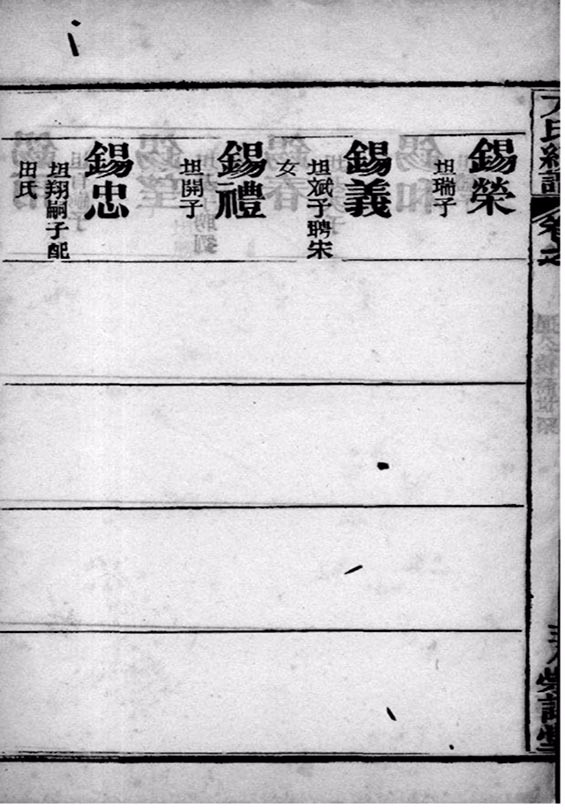 錫榮
坦瑞子
錫義
坦斌子聘朱
女
錫禮
坦開子
錫忠
坦翔嗣子配
田氏
氏續譜
卷之